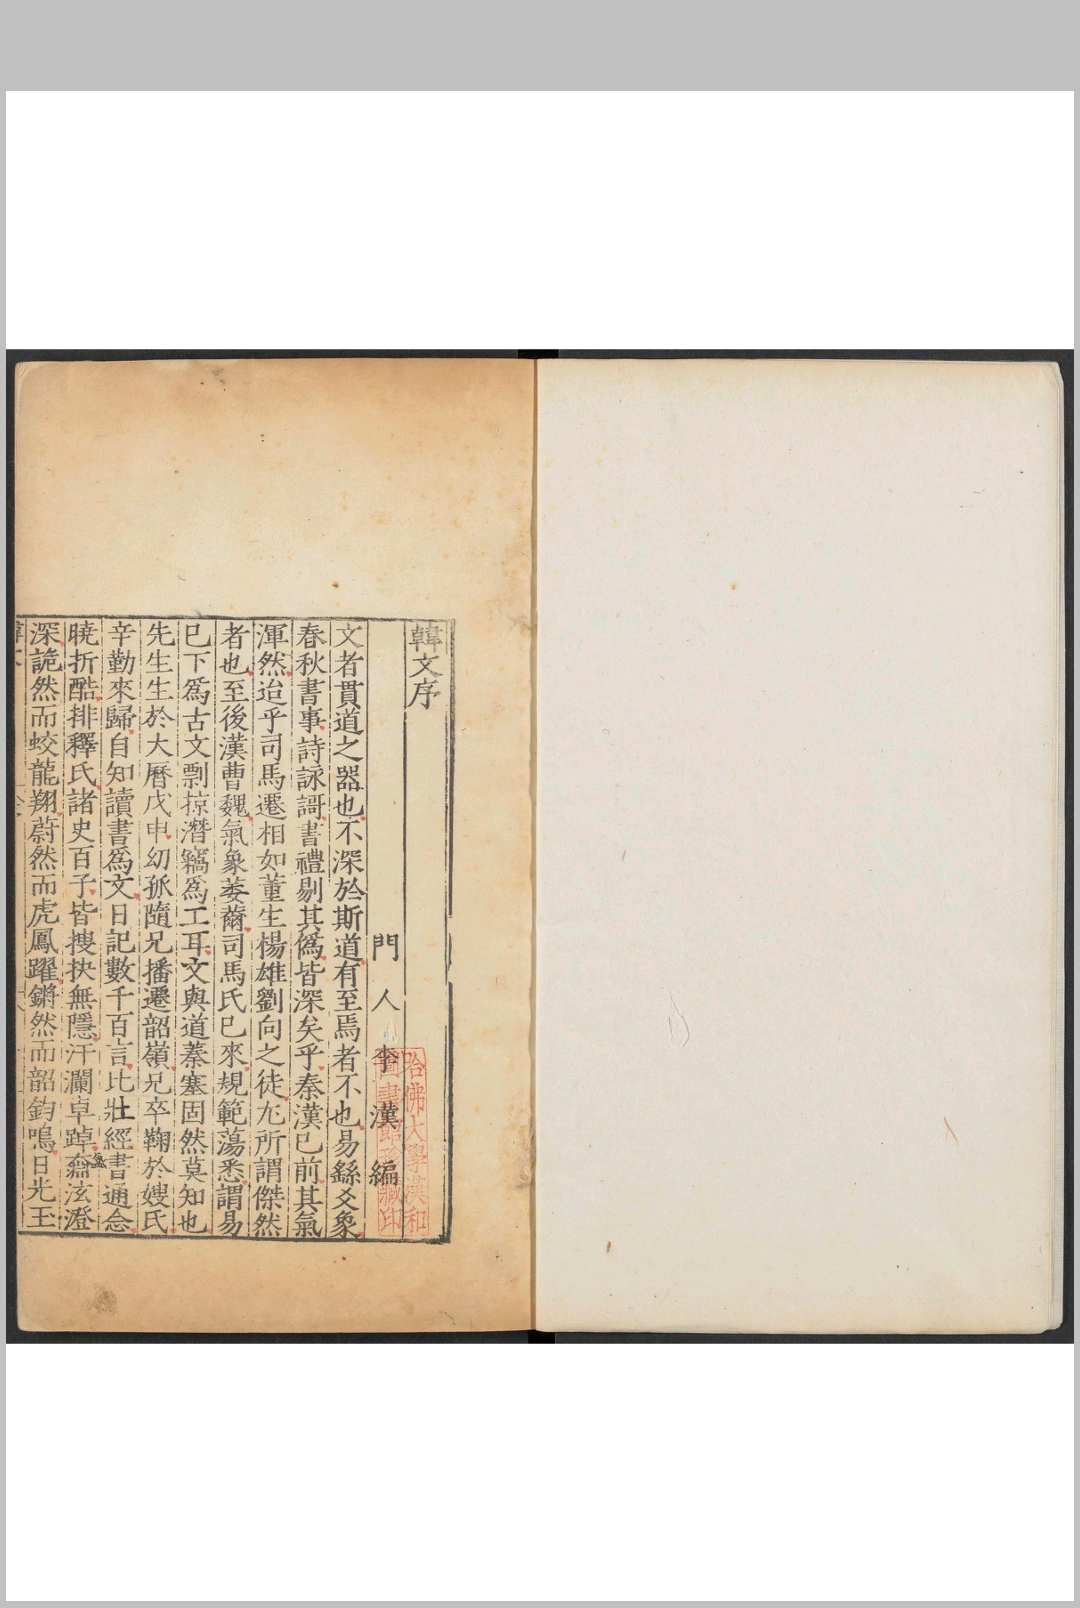 韓文序
門人李漢編
文者貫道之器也不深於斯道有至焉者不也易繇爻象
春秋書事詩詠謌書禮剔其僞皆深矣乎秦漢已前其氣
渾然迨乎司馬遷相如董生楊雄劉向之徒尤所謂傑然
者也至後漢曹魏氣象萎薾司馬氏已來規範蕩悉謂易
已下爲古文剽掠潛竊爲工耳文與道蓁塞固然莫知也
先生生於大曆戊申幼孤隨兄播遷韶嶺兄卒鞠於嫂氏
辛勤來歸自知讀書爲文日記數千百言比壯經書通念
曉折酷排釋氏諸史百子皆搜抉無隱汗瀾卓踔奫泫澄
深詭然而蛟龍翔蔚然而虎鳳躍鏘然而韶鈞鳴日光玉
哈佛大學漢和
圖書館珍藏印